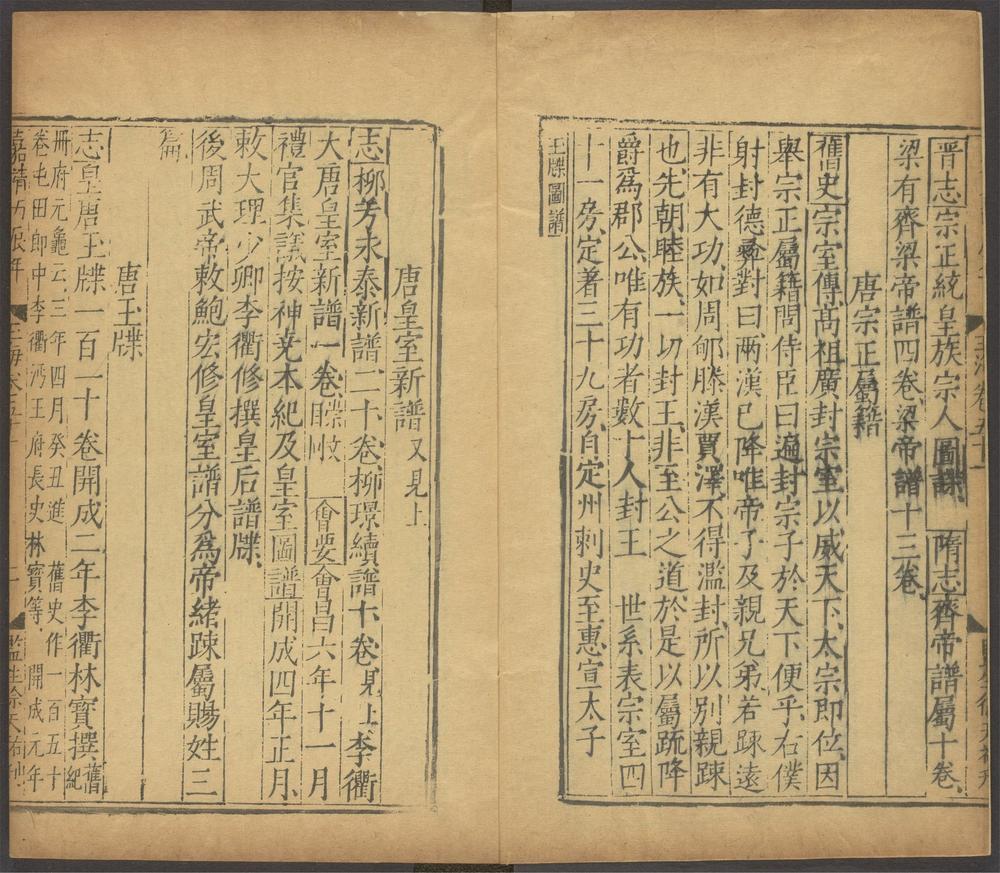 晉志宗正統皇族宗人圖諜 隋志齊帝譜屬十卷
梁有齊梁帝譜四卷梁帝譜十三卷
唐宗正屬籍
舊史宗室傳高祖廣封宗室以威天下太宗即位因
舉宗正屬籍問侍臣曰遍封宗子於天下便乎右僕
射封德彝對曰兩漢已降唯帝子及親兄弟若踈遠
非有大功如周郇滕漢賈澤不得濫封所以別親踈
也先朝睦族一切封王非至公之道於是以屬疏降
爵爲郡公唯有功者數十人封王 世系表宗室四
十一房定著三十九房自定州刺史至惠宣太子
玉牒圖譜
唐皇室新譜又見上
志柳芳永泰新譜二十卷柳璟續譜十卷見上李衢
大唐皇室新譜一卷 會要會昌六年十一月
禮官集議按神堯本紀及皇室圖譜開成四年正月
敕大理少卿李衢修撰皇后譜牒
後周武帝敕鮑宏修皇室譜分爲帝緒踈屬賜姓三
篇
唐玉牒
志皇唐玉牒一百一十卷開成二年李衢林寶撰舊紀
冊府元龜云三年四月癸丑進 舊史作一百五十
卷屯田郎中李衢沔王府長史林寶等 開成元年